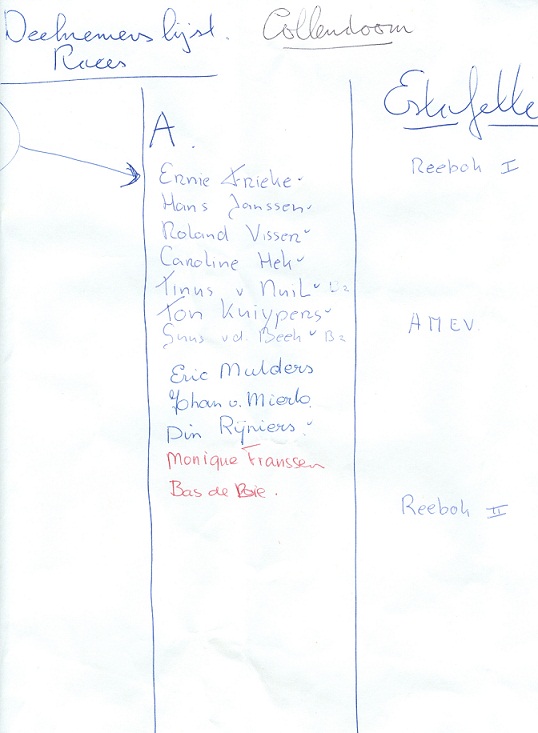 Deelnemerslijst. Collendoorn
Races
Estafette
A.
Reebok I
Ernie Frieke
Hans Janssen
Roland Vissen
Caroline Hek
Tinus v Nuil
Ton Kuiypens
AMEV.
Suus vd. Beek B2
Eric Mulders
Johan v. Mierlo
Din Rijniers
Monique Franssen
Bas de Bie.
Reebok II